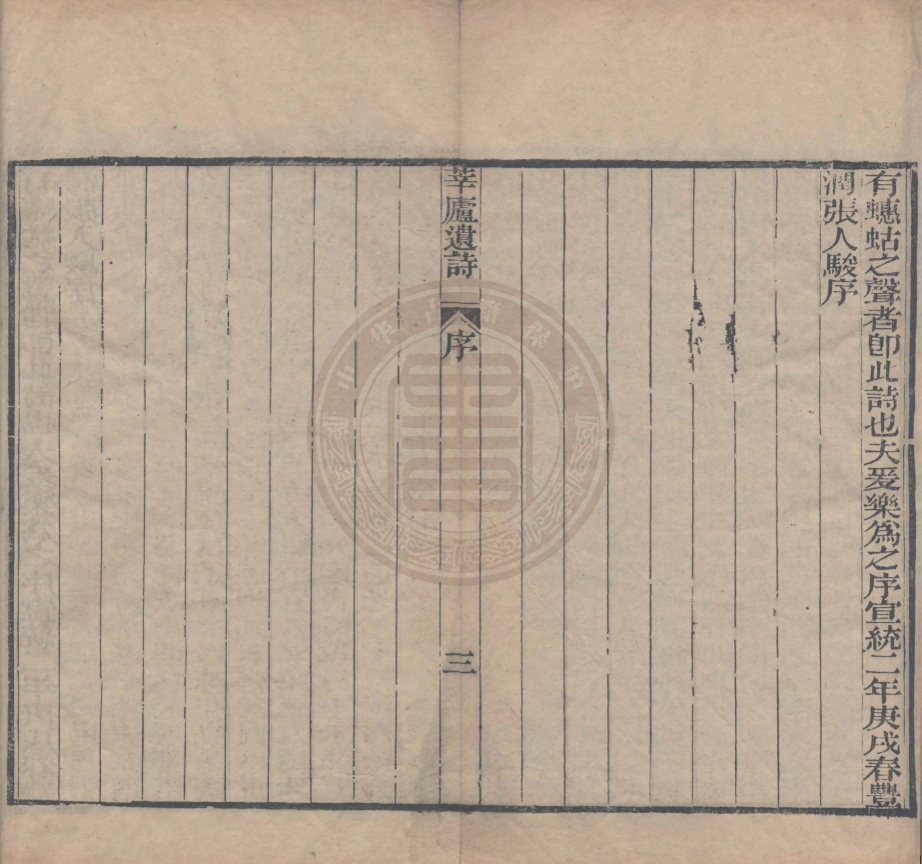 有蟪蛄之聲者卽此詩也夫爰樂爲之序宣統二年庚戌春豐
潤張人駿序
莘廬遺詩
序
三